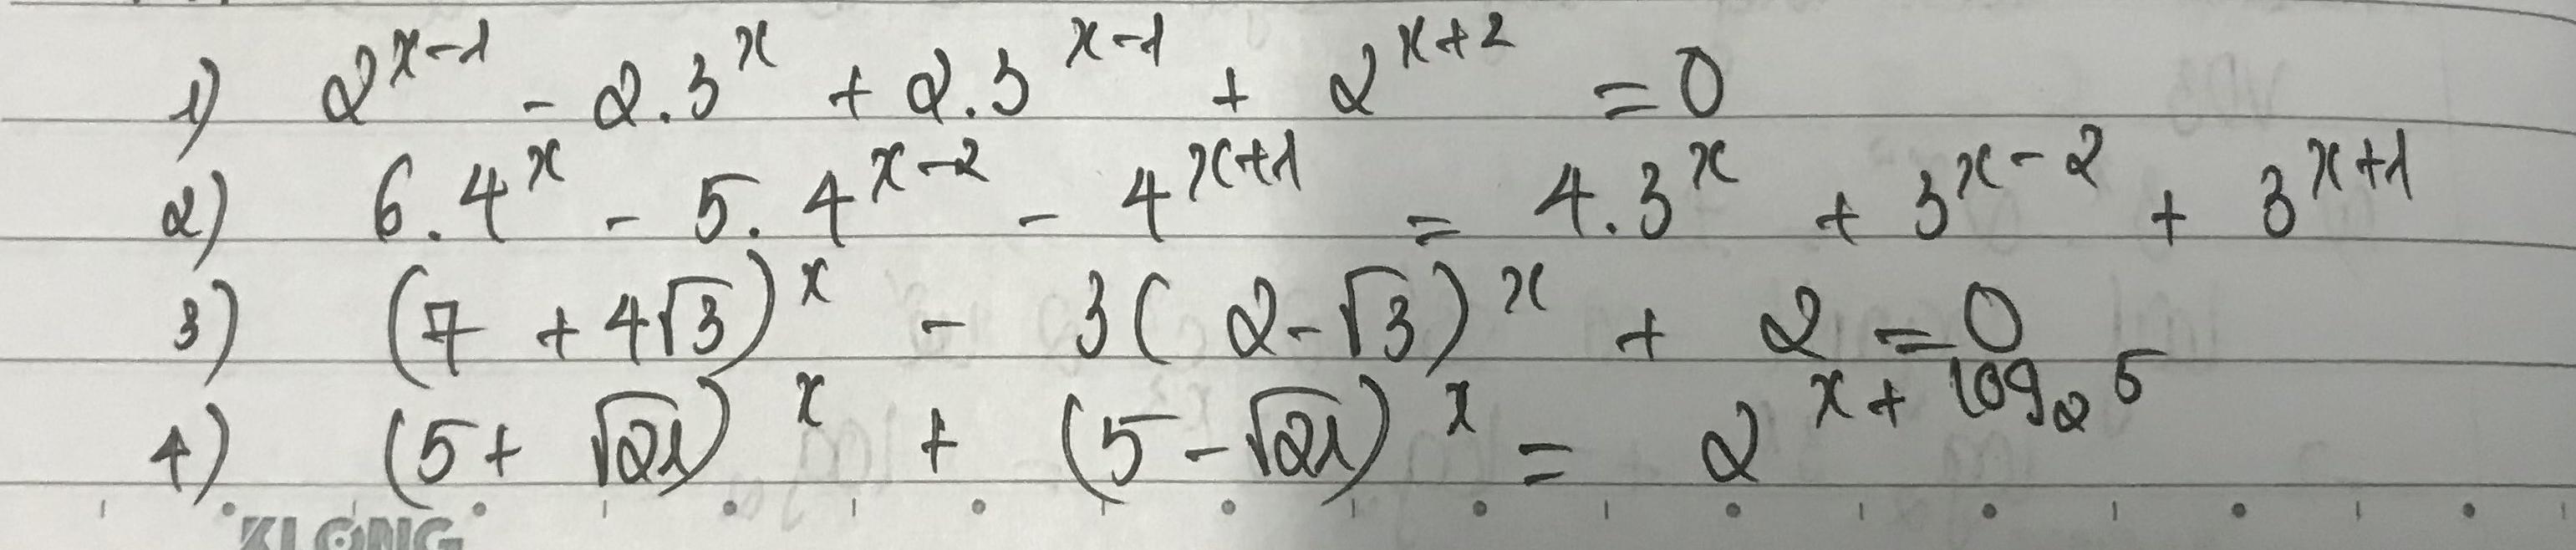 1) 2^{x-1} - 2.3^x + 2.3^{x-1} + 2^{x+2} = 0
2) 6.4^x - 5.4^{x-2} - 4^{x+1} = 4.3^x + 3^{x-2} + 3^{x+1}
3) (7 + 4√3)^x - 3(2-√3)^x + 2 = 0
4) (5 + √21)^x + (5 - √21)^x = 2^{x + log_2 5}
KLONG